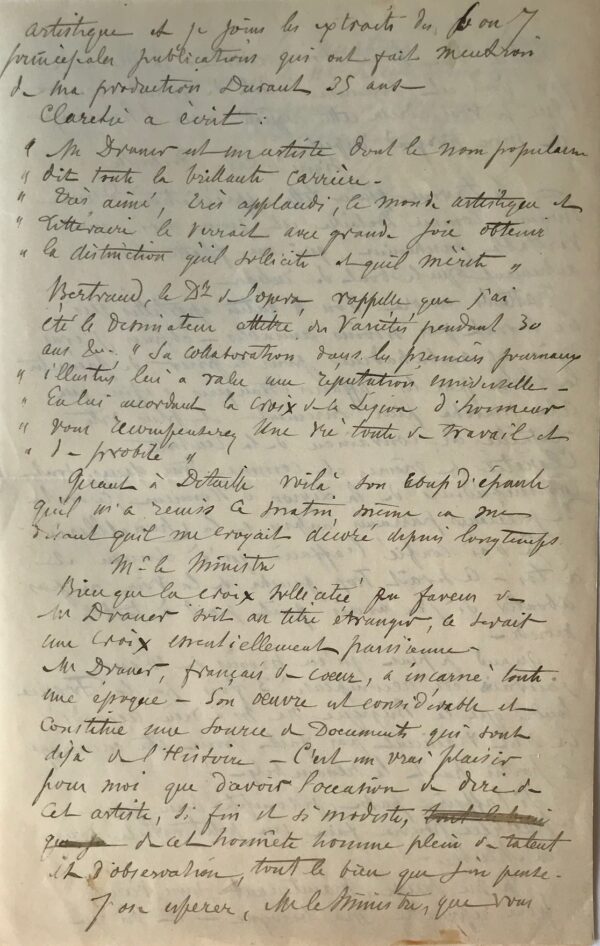 artistique et je joins les extraits des 6 ou 7
principales publications qui ont fait mention
de ma production Durant 35 ans
Claretie a écrit :
" Mr Draner est un artiste dont le nom populaire
" dit toute la brillante carrière -
" Très aimé, très applaudi, le monde artistique et
" littéraire le verrait avec grande joie obtenir
" la distinction qu'il sollicite et qu'il mérite "
Bertrand, le Dr de l'opera rappelle que j'ai
été le Dessinateur attitré des Variétés pendant 30
ans &c. " Sa collaboration dans les premiers journaux
" illustrés lui a valu une réputation universelle -
" En lui accordant la croix de la Legion d'honneur
" vous récompenserez Une vie toute de travail et
" de probité "
Quant à Detaille voilà son coup d'épaule
qu'il m'a remis ce matin même en me
disant qu'il me croyait décoré depuis longtemps
Mr le Ministre
Bien que la croix sollicitée en faveur de
Mr Draner soit au titre étranger, ce serait
une croix essentiellement parisienne -
Mr Draner, français de cœur, a incarné toute
une époque - Son œuvre est considérable et
constitue une source de Documents qui sont
déjà de l'Histoire - C'est un vrai plaisir
pour moi que d'avoir l'occasion de dire de
cet artiste, si fin et si modeste, tout le bien
que je de cet honnête homme plein de talent
et d'observation, tout le bien que j'en pense -
J'ose espérer, Mr le Ministre, que vous